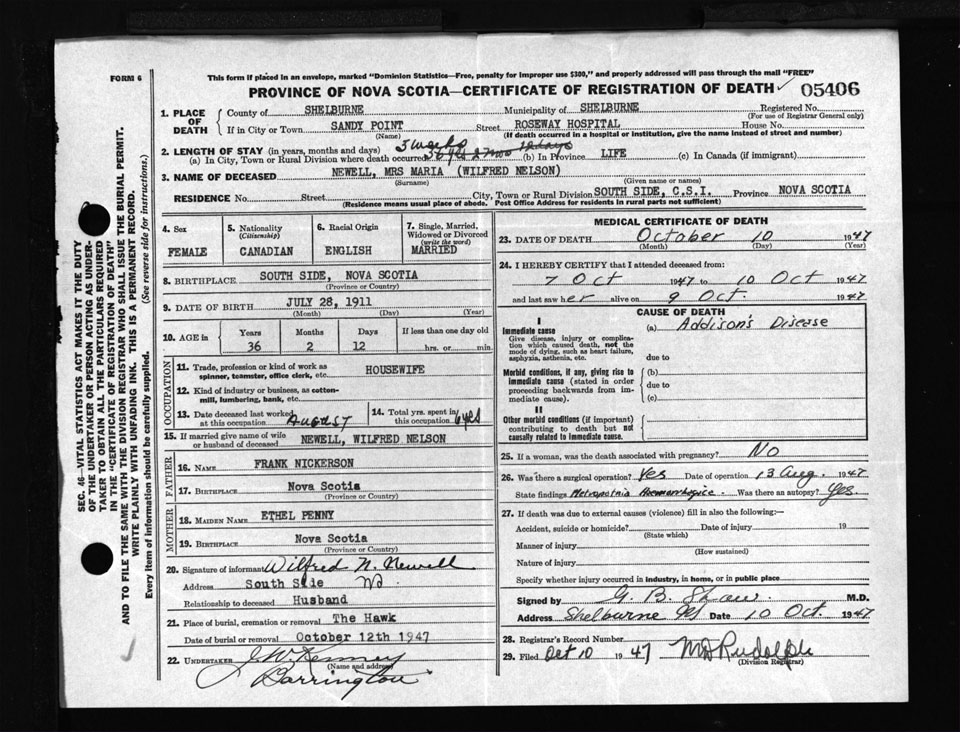 FORM 6
This form if placed in an envelope, marked "Dominion Statistics—Free, penalty for improper use $300," and properly addressed will pass through the mail "FREE"
PROVINCE OF NOVA SCOTIA—CERTIFICATE OF REGISTRATION OF DEATH 05406
SEC. 46—VITAL STATISTICS ACT MAKES IT THE DUTY
OF THE UNDERTAKER OR PERSON ACTING AS UNDER-
TAKER TO OBTAIN ALL THE PARTICULARS REQUIRED
IN THE "CERTIFICATE OF REGISTRATION OF DEATH"
AND TO FILE THE SAME WITH THE DIVISION REGISTRAR WHO SHALL ISSUE THE BURIAL PERMIT.
WRITE PLAINLY WITH UNFADING INK. THIS IS A PERMANENT RECORD.
Every item of information should be carefully supplied. (See reverse side for instructions.)
1. PLACE OF DEATH
County of SHELBURNE Municipality of SHELBURNE Registered No.
(For use of Registrar General only)
If in City or Town SANDY POINT Street ROSEWAY HOSPITAL House No.
(Name) (If death occurred in a hospital or institution, give the name instead of street and number)
2. LENGTH OF STAY (in years, months and days) 3 weeks
(a) In City, Town or Rural Division where death occurred 36 yrs 2 mos 12 days (b) In Province LIFE (c) In Canada (if immigrant)
3. NAME OF DECEASED NEWELL, MRS MARIA (WILFRED NELSON)
(Surname) (Given name or names)
RESIDENCE No. Street City, Town or Rural Division SOUTH SIDE, C.S.I. Province NOVA SCOTIA
(Residence means usual place of abode. Post Office Address for residents in rural parts not sufficient)
4. Sex 5. Nationality 6. Racial Origin 7. Single, Married,
(Citizenship) Widowed or Divorced
(write the word)
FEMALE CANADIAN ENGLISH MARRIED
8. BIRTHPLACE SOUTH SIDE, NOVA SCOTIA
(Province or Country)
9. DATE OF BIRTH JULY 28, 1911
(Month) (Day) (Year)
10. AGE in Years Months Days If less than one day old
36 2 12 hrs. or min.
OCCUPATION
11. Trade, profession or kind of work as
spinner, teamster, office clerk, etc. HOUSEWIFE
12. Kind of industry or business, as cotton-
mill, lumbering, bank, etc.
13. Date deceased last worked
at this occupation August
14. Total yrs. spent in
this occupation 6 yrs
15. If married give name of wife
or husband of deceased NEWELL, WILFRED NELSON
FATHER
16. NAME FRANK NICKERSON
17. BIRTHPLACE Nova Scotia
(Province or Country)
MOTHER
18. MAIDEN NAME ETHEL PENNY
19. BIRTHPLACE Nova Scotia
(Province or Country)
20. Signature of informant Wilfred N. Newell
Address South Side NS
Relationship to deceased Husband
21. Place of burial, cremation or removal The Hawk
Date of burial or removal October 12th 1947
22. UNDERTAKER J. W. Kenney
(Name and address)
Barrington
MEDICAL CERTIFICATE OF DEATH
23. DATE OF DEATH October 10 1947
(Month) (Day) (Year)
24. I HEREBY CERTIFY that I attended deceased from:
7 Oct 1947 to 10 Oct 1947
and last saw her alive on 9 Oct. 1947
CAUSE OF DEATH
I
Immediate cause (a) Addison's Disease
Give disease, injury or complica-
tion which caused death, not the
mode of dying, such as heart failure,
asphyxia, asthenia, etc. due to
Morbid conditions, if any, giving rise to (b)
immediate cause (stated in order due to
proceeding backwards from im-
mediate cause). (c)
II
Other morbid conditions (if important)
contributing to death but not
causally related to immediate cause.
25. If a woman, was the death associated with pregnancy? No
26. Was there a surgical operation? Yes Date of operation 13 Aug. 1947
State findings Haemorrhagica Was there an autopsy? Yes.
27. If death was due to external causes (violence) fill in also the following:—
Accident, suicide or homicide? Date of injury 19
(State which)
Manner of injury
(How sustained)
Nature of injury
Specify whether injury occurred in industry, in home, or in public place
Signed by G. B. Shaw M.D.
Address Shelburne NS Date 10 Oct. 1947
28. Registrar's Record Number
29. Filed Oct 10 1947 M D Rudolph
(Division Registrar)